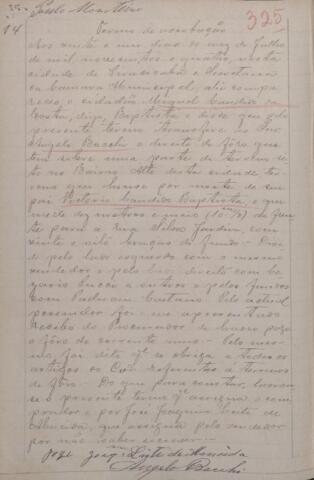 325
14
Termo de
Aos vinte e um dias do mez de Julho
de mil novecentos e quatro, nesta
cidade de Piracicaba e Secretaria
da Camara Municipal, ahi compa
receo o cidadão Miguel Candido da
Costa, digo, Baptista e disse que pelo
presente termo transfere ao Snr.
Angelo Bacchi o direito de fôro que
tem sobre uma parte de terreno si
to no Bairro Alto desta cidade e ter
reno que houve por morte de seu
pai Victorio Candido Baptista, e que
mede dez metros e meio (10 m ½) de fren
te para a rua Silva Jardim, com
vinte e oito braças de fundo. Divi
de pelo lado esquerdo com o mesmo
vendedor e pelo lado direito com
e outros e pelos fundos
com Caetano. Pelo actual
foi me apresentado
recibo do Procurador de haver pago
o fôro do corrente anno. Pelo mes
mo foi dito q. se obriga a todos os
artigos do Cod. referentes a terrenos
de fôro. Do que para constar, lavrou
se o presente termo q. assigna o com
prador e por José Joaquim Leite de
Almeida, que assigna pelo vendedor
por não saber escrever.
José Joaq. Leite de Almeida
Angelo Bacchi